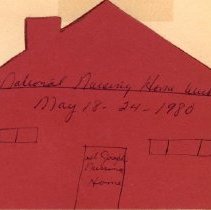 National Nursing Home Week
May 18-24-1980
St Joseph
Nursing
Home